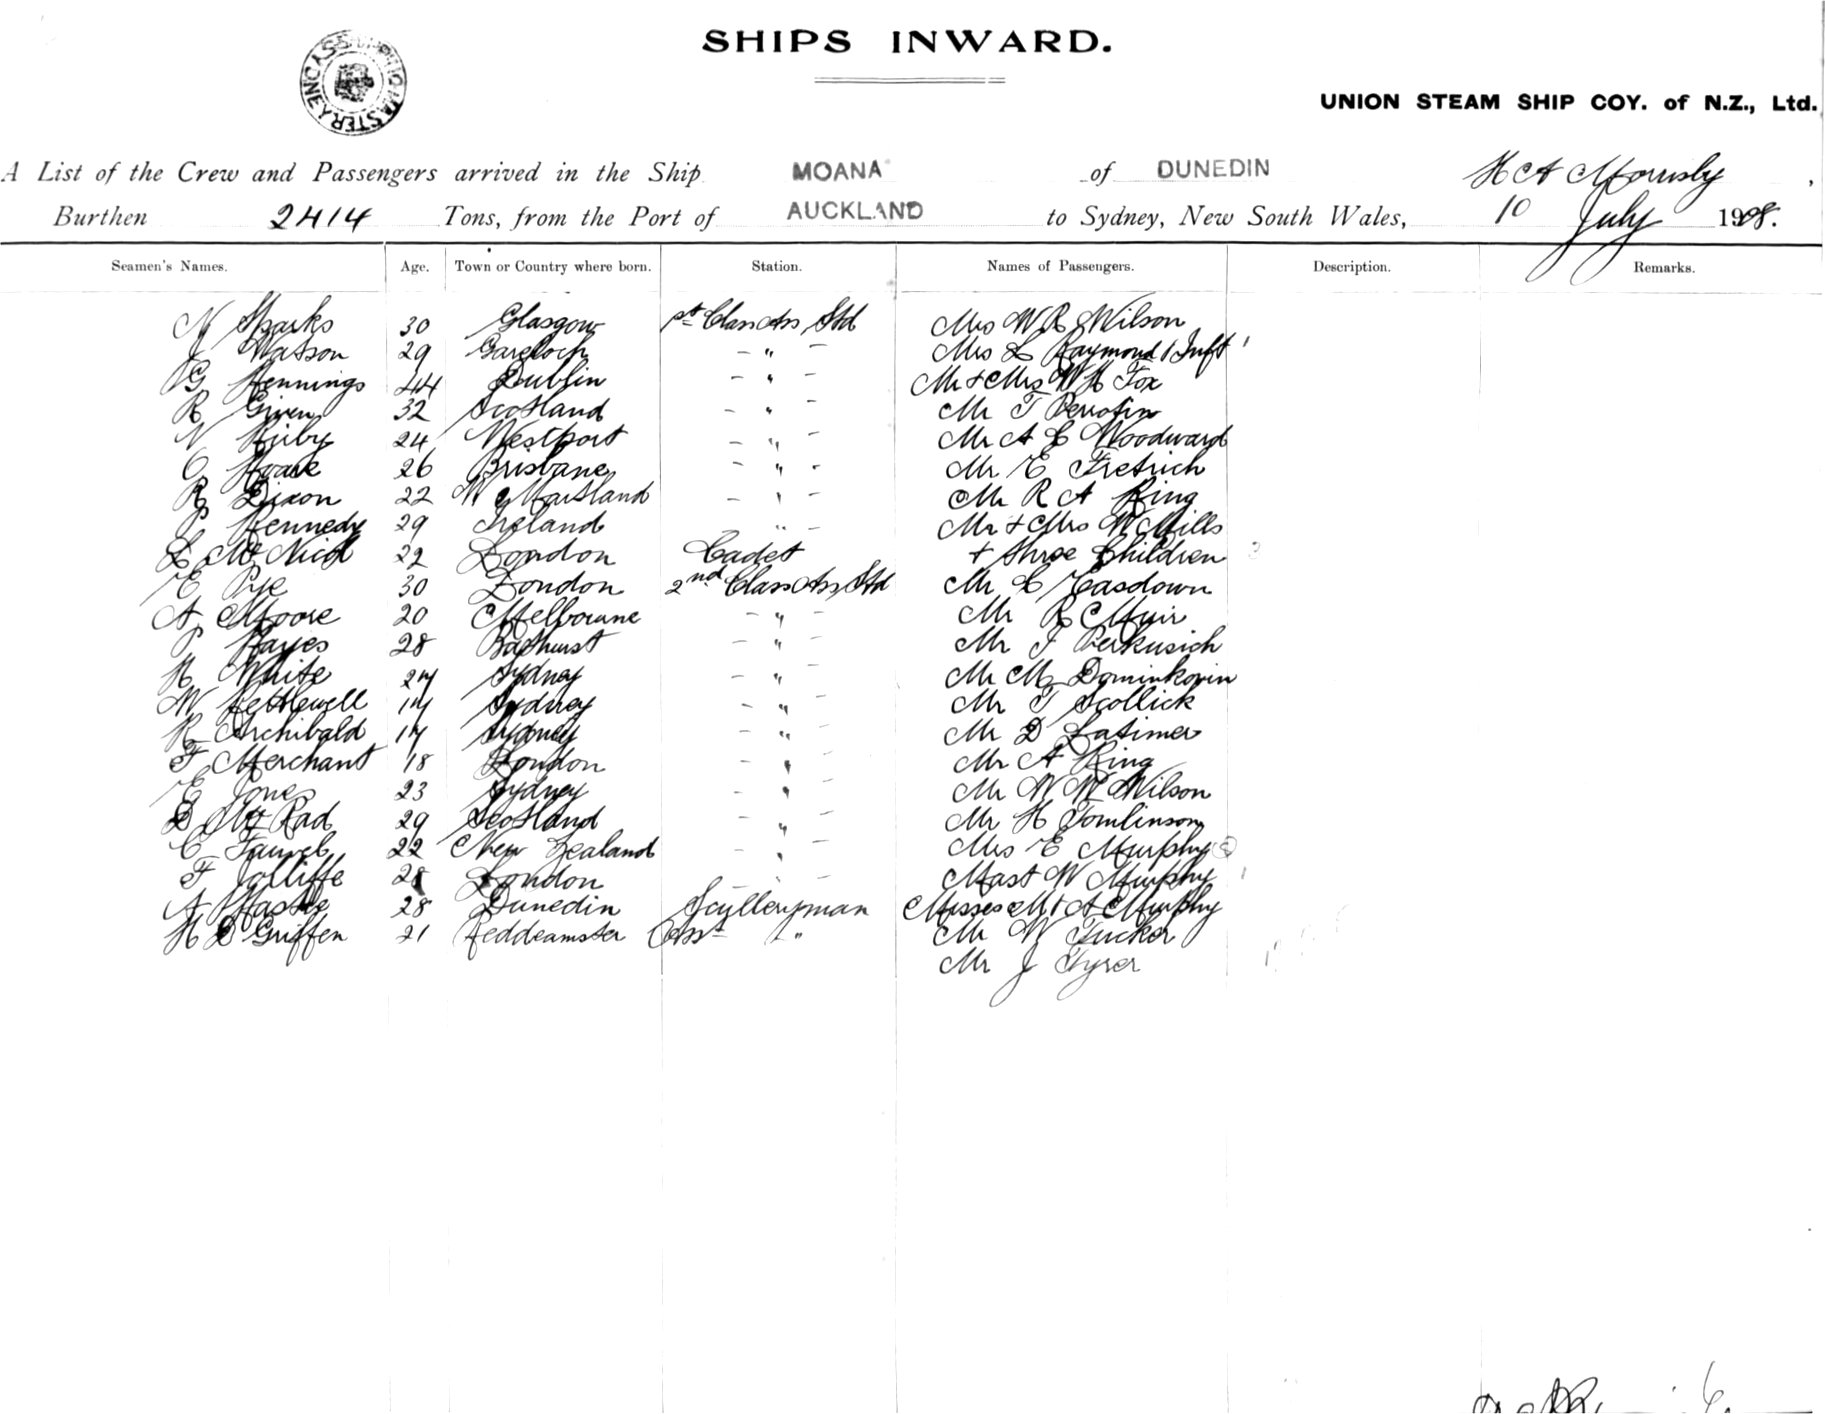 SHIPS INWARD.
UNION STEAM SHIP COY. of N.Z., Ltd.
A List of the Crew and Passengers arrived in the Ship MOANA of DUNEDIN H A
Burthen 2414 Tons, from the Port of AUCKLAND to Sydney, New South Wales, 10 July 1908.
Seamen's Names. Age. Town or Country where born. Station. Names of Passengers. Description. Remarks.
N Sparks 30 Glasgow 1st Class Ass Std Mrs W R Wilson
J Watson 29 Gareloch - " - Mrs L Raymond 1 Inft 1
G Jennings 24 Dublin - " - Mr & Mrs W H Fox
R Given 32 Scotland - " - Mr T
N Kirby 24 Westport - " - Mr A E Woodward
C Hoare 26 Brisbane - " - Mr E Fretrich
R Dixon 22 W Maitland - " - Mr R A King
P Kennedy 29 Ireland " - Mr & Mrs W Mills
L McNicol 22 London Cadet + three Children 3
E Pye 30 London 2nd Class Ass Std Mr C Easdown
A Moore 20 Melbourne - " - Mr R Muir
P Hayes 28 Bathurst - " - Mr J Perkusich
H White 24 Sydney - " - Mr M
W 17 Sydney - " - Mr T Scollick
R Archibald 17 Sydney - " - Mr D Latimer
F Merchant 18 London - " - Mr A King
E Jones 23 Sydney - " - Mr W W Wilson
D Mc Rad 29 Scotland - " - Mr H Tomlinson
C 22 New Zealand - " - Mrs E Murphy
F Jolliffe 28 London - Mast W Murphy 1
A 28 Dunedin Sculleryman Misses M & A Murphy
H D Griffen 21 Asst " Mr W Tucker
Mr J Tyrer